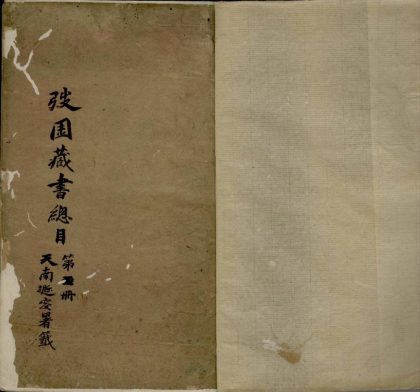 弢園藏書總目
第二册
天南遯叟署籤